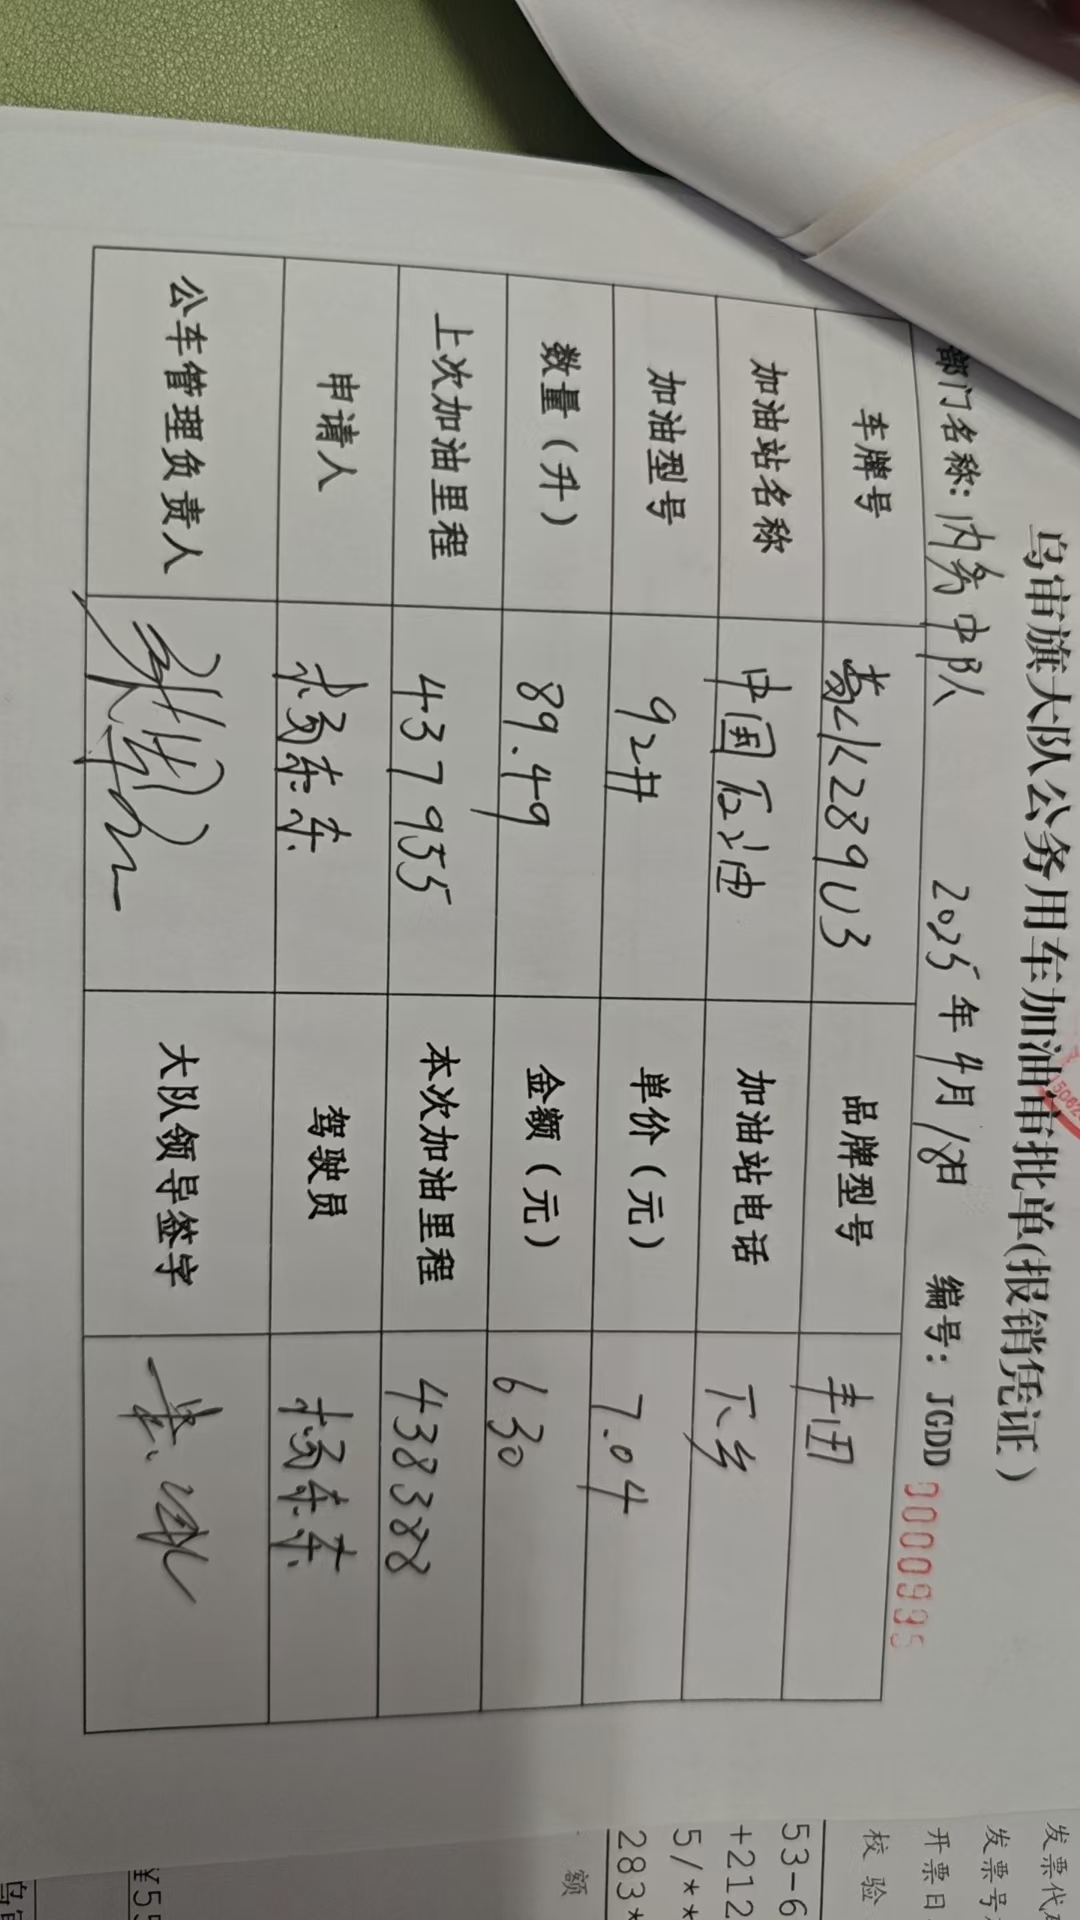 乌审旗大队公务用车加油审批单(报销凭证)
部门名称: 内务中队 2025年4月18日 编号: JGDD 0000995
车牌号 蒙K289U3 品牌型号 丰田
加油站名称 中国石油 加油站电话 下乡
加油型号 92# 单价(元) 7.04
数量(升) 89.49 金额(元) 630
上次加油里程 437955 本次加油里程 438388
申请人 杨东东 驾驶员 杨东东
公车管理负责人 大队领导签字
15062
发票代码
发票号
开票日
校验
53-6
+212
5/**
283*
额
¥55